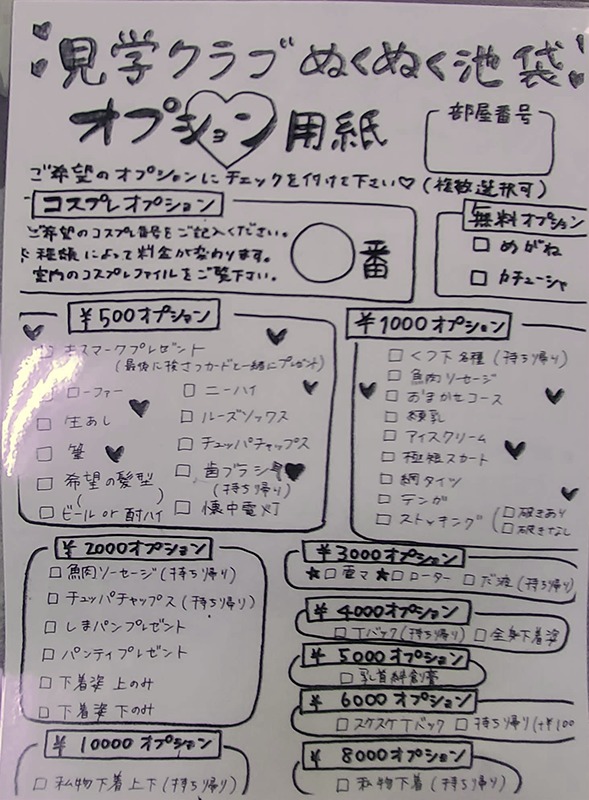 見学クラブぬくぬく池袋
オプション用紙
部屋番号
ご希望のオプションにチェックを付けて下さい♡(複数選択可)
コスプレオプション
ご希望のコスプレ番号をご記入ください。
※種類によって料金が変わります。
室内のコスプレファイルをご覧下さい。
番
無料オプション
めがね
カチューシャ
¥500オプション
キスマークプレゼント
(最後に検さつカードと一緒にプレゼント)
ローファー
ニーハイ
生あし
ルーズソックス
筆
チュッパチャップス
希望の髪型
( )
歯ブラシ
(持ち帰り)
ビール or 酎ハイ
懐中電灯
¥1000オプション
くつ下各種(持ち帰り)
魚肉ソーセージ
おまかせコース
練乳
アイスクリーム
極短スカート
網タイツ
テンガ
ストッキング(破きあり
破きなし
¥2000オプション
魚肉ソーセージ(持ち帰り)
チュッパチャップス(持ち帰り)
しまパンプレゼント
パンティプレゼント
下着姿 上のみ
下着姿 下のみ
¥3000オプション
★電マ ★ローター だ液(持ち帰り)
¥4000オプション
Tバック(持ち帰り) 全身下着姿
¥5000オプション
乳首絆創膏
¥6000オプション
スケスケTバック 持ち帰り(+¥100
¥10000オプション
私物下着上下(持ち帰り)
¥8000オプション
私物下着(持ち帰り)